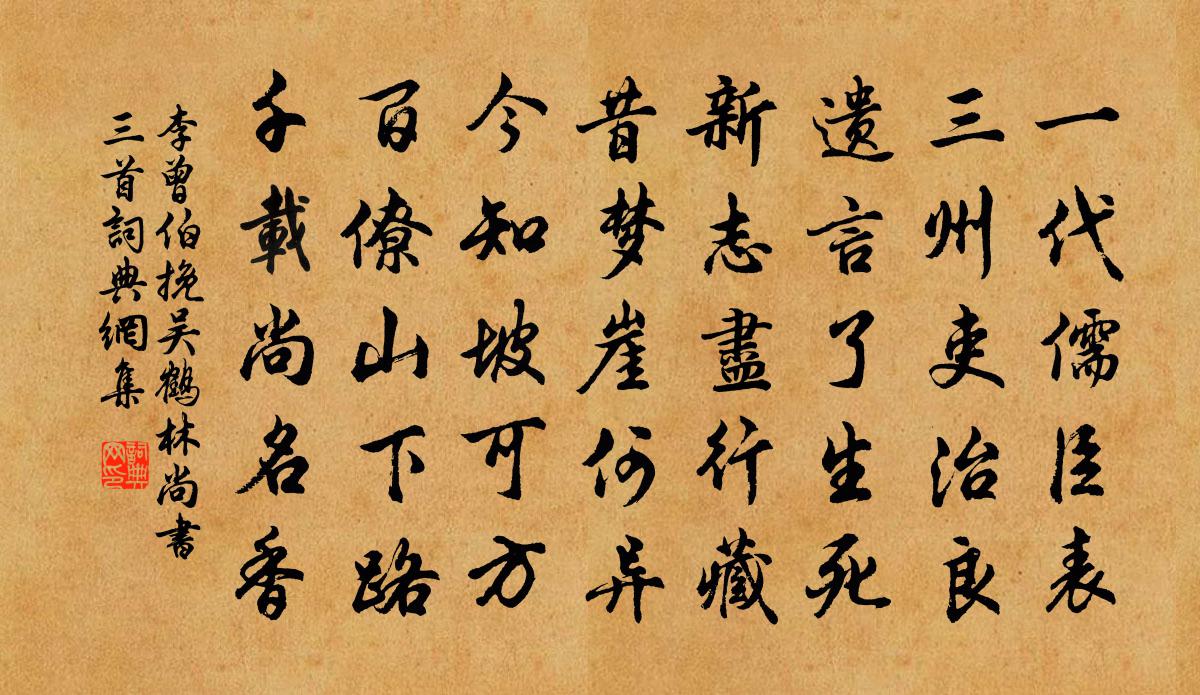 一代儒臣表
三州吏治良
遗言了生死
新志盡行藏
昔梦崖何异
今知坡可方
百僚山下路
千載尚名香
李曾伯挽吴鶴林尚書
三首詞典網集
詞典
网印